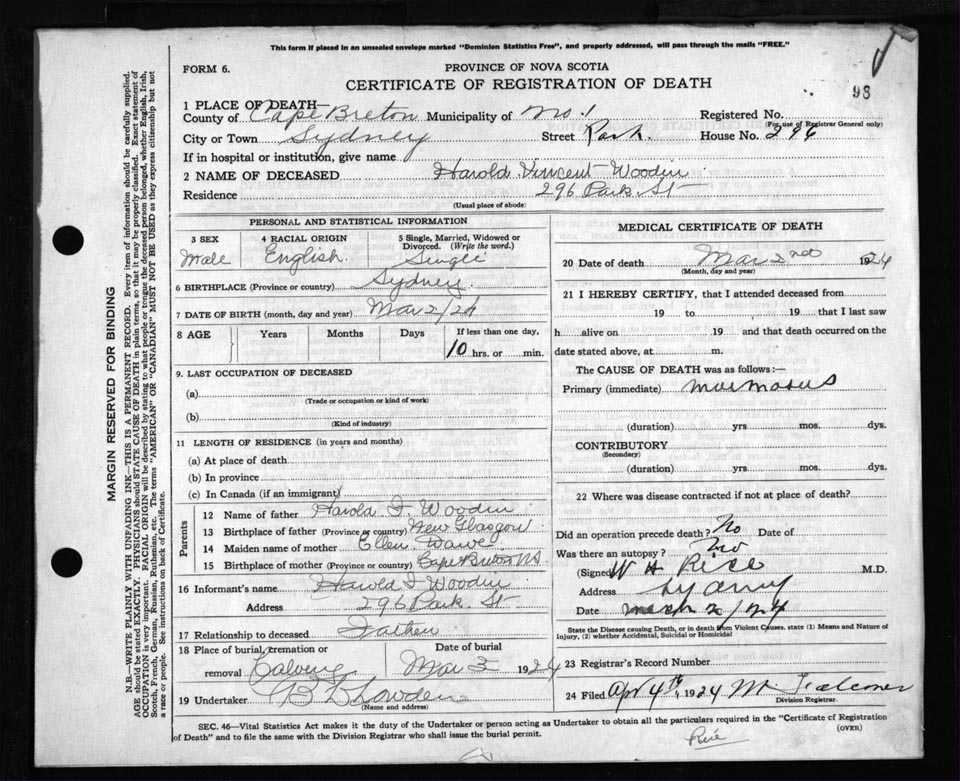 This form if placed in an unsealed envelope marked "Dominion Statistics Free", and properly addressed, will pass through the mails "FREE."
FORM 6.
PROVINCE OF NOVA SCOTIA
CERTIFICATE OF REGISTRATION OF DEATH
93
1 PLACE OF DEATH—
County of Cape Breton Municipality of No. 1 Registered No.
(For use of Registrar General only)
City or Town Sydney Street Park House No. 296
If in hospital or institution, give name
2 NAME OF DECEASED Harold Vincent Woodin
Residence 296 Park St
(Usual place of abode)
PERSONAL AND STATISTICAL INFORMATION
3 SEX Male
4 RACIAL ORIGIN English
5 Single, Married, Widowed or Divorced. (Write the word.) Single
6 BIRTHPLACE (Province or country) Sydney
7 DATE OF BIRTH (month, day and year) Mar 2/24
8 AGE Years Months Days If less than one day, 10 hrs. or min.
9. LAST OCCUPATION OF DECEASED
(a)
(Trade or occupation or kind of work)
(b)
(Kind of industry)
11 LENGTH OF RESIDENCE (in years and months)
(a) At place of death
(b) In province
(c) In Canada (if an immigrant)
Parents
12 Name of father Harold I. Woodin
13 Birthplace of father (Province or country) New Glasgow
14 Maiden name of mother Ellen
15 Birthplace of mother (Province or country) Cape Breton NS
16 Informant's name Harold I Woodin
Address 296 Park St
17 Relationship to deceased Father
18 Place of burial, cremation or removal Date of burial Mar 3 1924
19 Undertaker
(Name and address)
MEDICAL CERTIFICATE OF DEATH
20 Date of death Mar 2nd 1924
(Month, day and year)
21 I HEREBY CERTIFY, that I attended deceased from
19 to 19 that I last saw
h alive on 19 and that death occurred on
date stated above, at m.
The CAUSE OF DEATH was as follows:—
Primary (immediate)
(duration) yrs. mos. dys.
CONTRIBUTORY
(Secondary)
(duration) yrs. mos. dys.
22 Where was disease contracted if not at place of death?
Did an operation precede death? No Date of
Was there an autopsy? No
(Signed W H Rice M.D.
Address Sydney
Date March 2/24
State the Disease causing Death, or in death from Violent Causes, state (1) Means and Nature of
Injury, (2) whether Accidental, Suicidal or Homicidal
23 Registrar's Record Number
24 Filed Apr 4th, 1924 M. Falconer
Division Registrar.
SEC. 46—Vital Statistics Act makes it the duty of the Undertaker or person acting as Undertaker to obtain all the particulars required in the "Certificate cf Registration
of Death" and to file the same with the Division Registrar who shall issue the burial permit.
(OVER)
Rice
MARGIN RESERVED FOR BINDING
N.B.—WRITE PLAINLY WITH UNFADING INK—THIS IS A PERMANENT RECORD. Every item of information should be carefully supplied.
AGE should be stated EXACTLY. PHYSICIANS should STATE CAUSE OF DEATH in plain terms, so that it may be properly classified. Exact statement of
OCCUPATION is very important. RACIAL ORIGIN will be described by stating to what people or tongue the deceased person belonged, whether English, Irish,
Scotch, French, German, Russian, Ruthenian, etc. The terms "AMERICAN" OR "CANADIAN" MUST NOT BE USED as they express citizenship but not
a race or people. See instructions on back of Certificate.